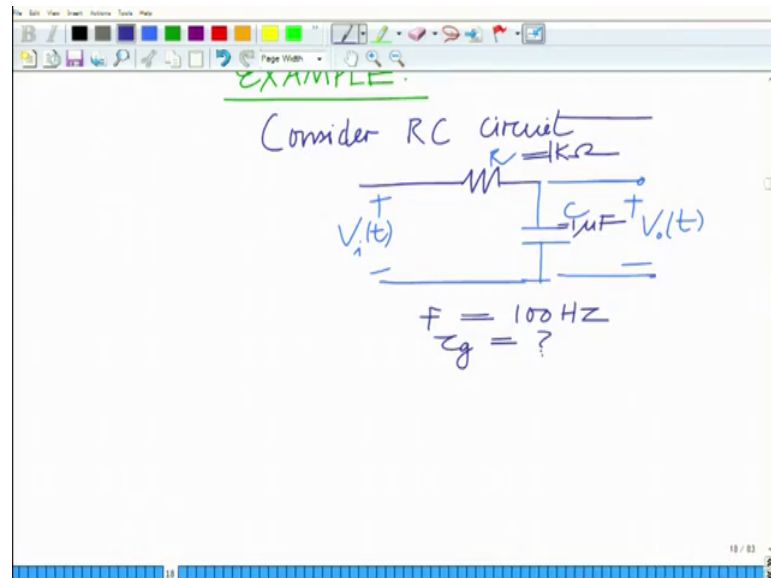 File Edit View Insert Actions Tools Help
B I
Page Width
EXAMPLE:
Consider RC Circuit
R = 1KΩ
+ C = 1μF +
Vi(t) Vo(t)
− −
f = 100 Hz
τg = ?
18 / 83
18